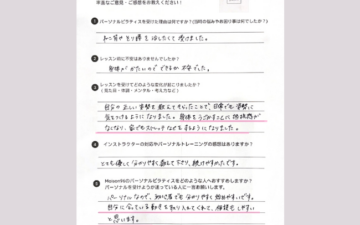 率直なご意見・ご感想をお教えください！
1 パーソナルピラティスを受けた理由は何ですか？(当時の悩みやお困り事は何でしたか？)
ねこ背やそり腰を治したくて受けました。
2 レッスン前に不安はありませんでしたか？
身体がかたいのでできるか不安でした。
3 レッスンを受けてどのような変化が起こりましたか？
(見た目・体調・メンタル・考え方など)
自分の正しい姿勢を教えてもらったことで、日常でも姿勢に
気をつけるようになりました。身体をうごかすことに抵抗感が
なくなり、家でもストレッチなどをするようになりました。
4 インストラクターの対応やパーソナルトレーニングの感想はありますか？
とても優しく分かりやすく直して下さり、続けやすかったです。
5 のパーソナルピラティスをどのような人へおすすめしますか？
パーソナルを受けようか迷っている人に一言お願いします。
パーソナルなので、初心者でも分かりやすく始めやすいです。
自分に合っている動きを取り入れてくれて、体験もしやすい
と思います。